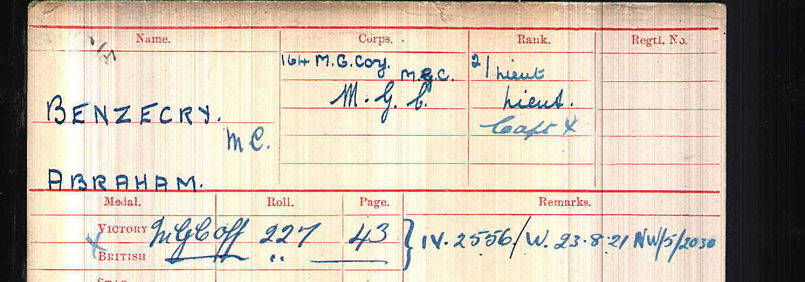 Name. Corps. Rank. Regtl. No.
164 M.G.Coy. M.G.C. 2/Lieut
BENZECRY. M.G.C. Lieut.
MC. Capt X
ABRAHAM.
Medal. Roll. Page. Remarks.
VICTORY MGC Off 227 43 } IV. 2556/W. 23.8.21 NW/5/2030
X BRITISH " ——
STAR